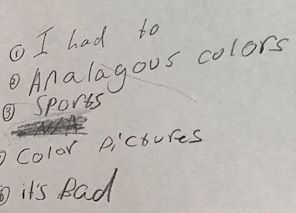 ① I had to
② Analagous colors
③ Sports
Color Pictures
it's Bad